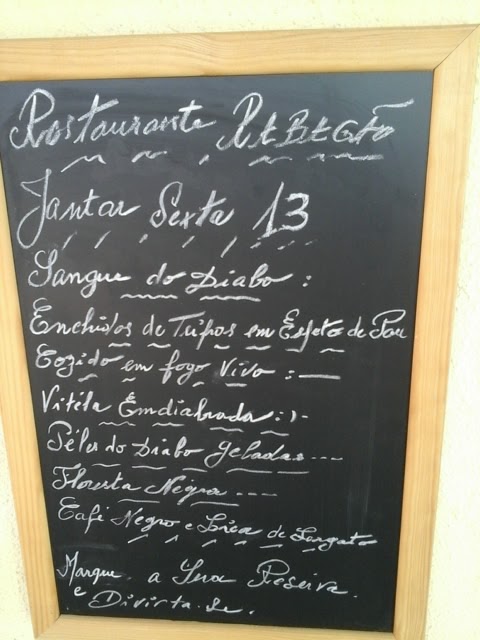 Restaurante REBEGÃO
Jantar Sexta 13
Sangue do Diabo :
Enchidos de Tripos em Espeto de Pau
Cozido em fogo Vivo :
Vitéla Emdiabrada :)-
Péles do Diabo geladas ---
Floresta Négra ----
Café Negro e de Lagarto
Marque a Sua Reserva
e Divirta.se.